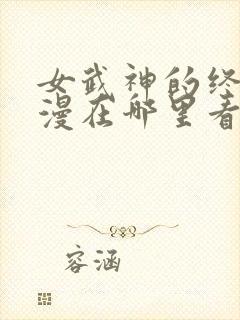 女武神的终
漫在哪里看
容涵